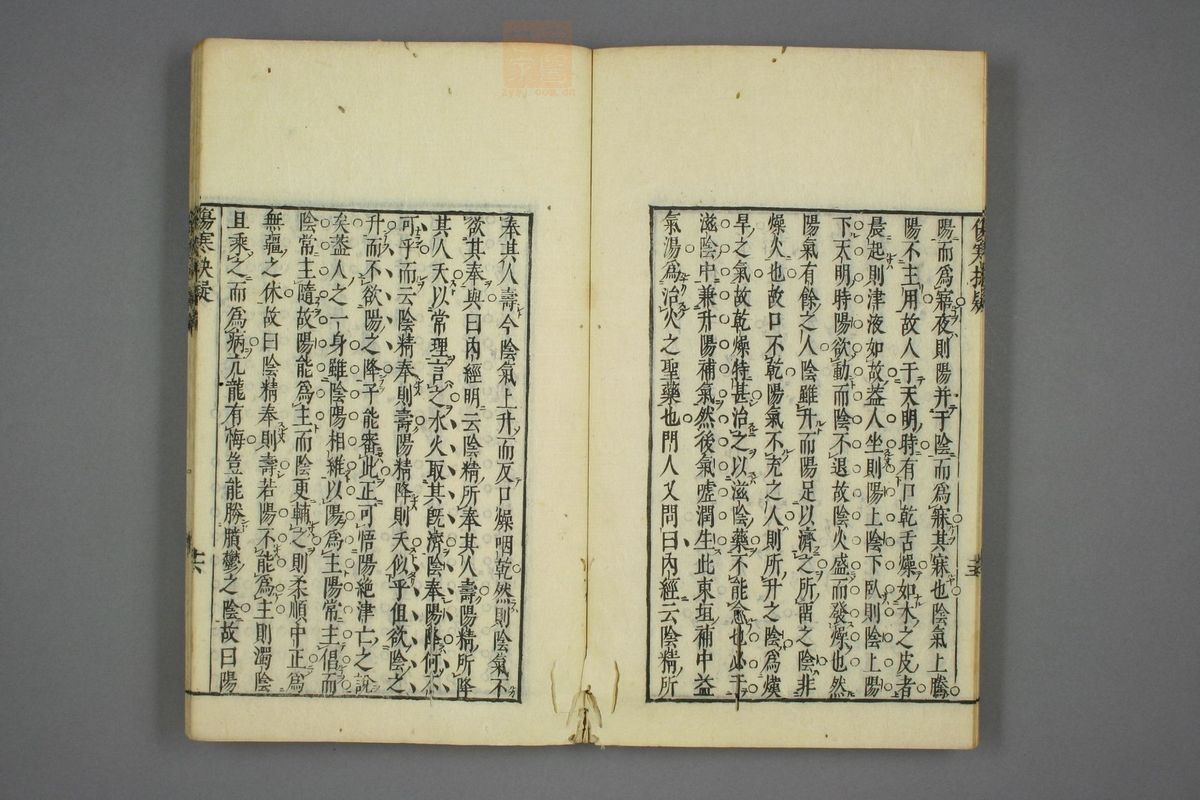 陽而為寤夜則陽并于陰而為寐其寐也陰氣上騰
陽不主用故人于天明時有口乾舌燥如木之皮者
晨起則津液如故蓋人坐則陽上陰下臥則陰上陽
下天明時陽欲動而陰不退故陰火盛而發燥也然
陽氣有餘之人陰雖升而陽足以濟之所畱之陰非
燥火也故口不乾陽氣不充之人則所升之陰為燥
旱之氣故乾燥特甚治之以滋陰藥不能愈也必于
滋陰中兼升陽補氣然後氣噓潤生此東垣補中益
氣湯為治火之聖藥也門人又問曰內經云陰精所
奉其人壽今陰氣上升而反口燥咽乾然則陰氣不
欲其奉與曰內經明云陰精所奉其人壽陽精所降
其人夭以常理言之水火取其既濟陰奉陽降何不
可乎而云陰精奉則壽陽精降則夭似乎但欲陰之
升而不欲陽之降予能審此正可悟陽絕津亡之說
矣蓋人之一身雖陰陽相維以陽為主陽常主倡而
陰常主隨故陽能為主而陰更輔之則柔順中正為
無疆之休故曰陰精奉則壽若陽不能為主則濁陰
且乘之而為病亢龍有悔豈能勝膹鬱之陰故曰陽
傷寒抉疑
十六